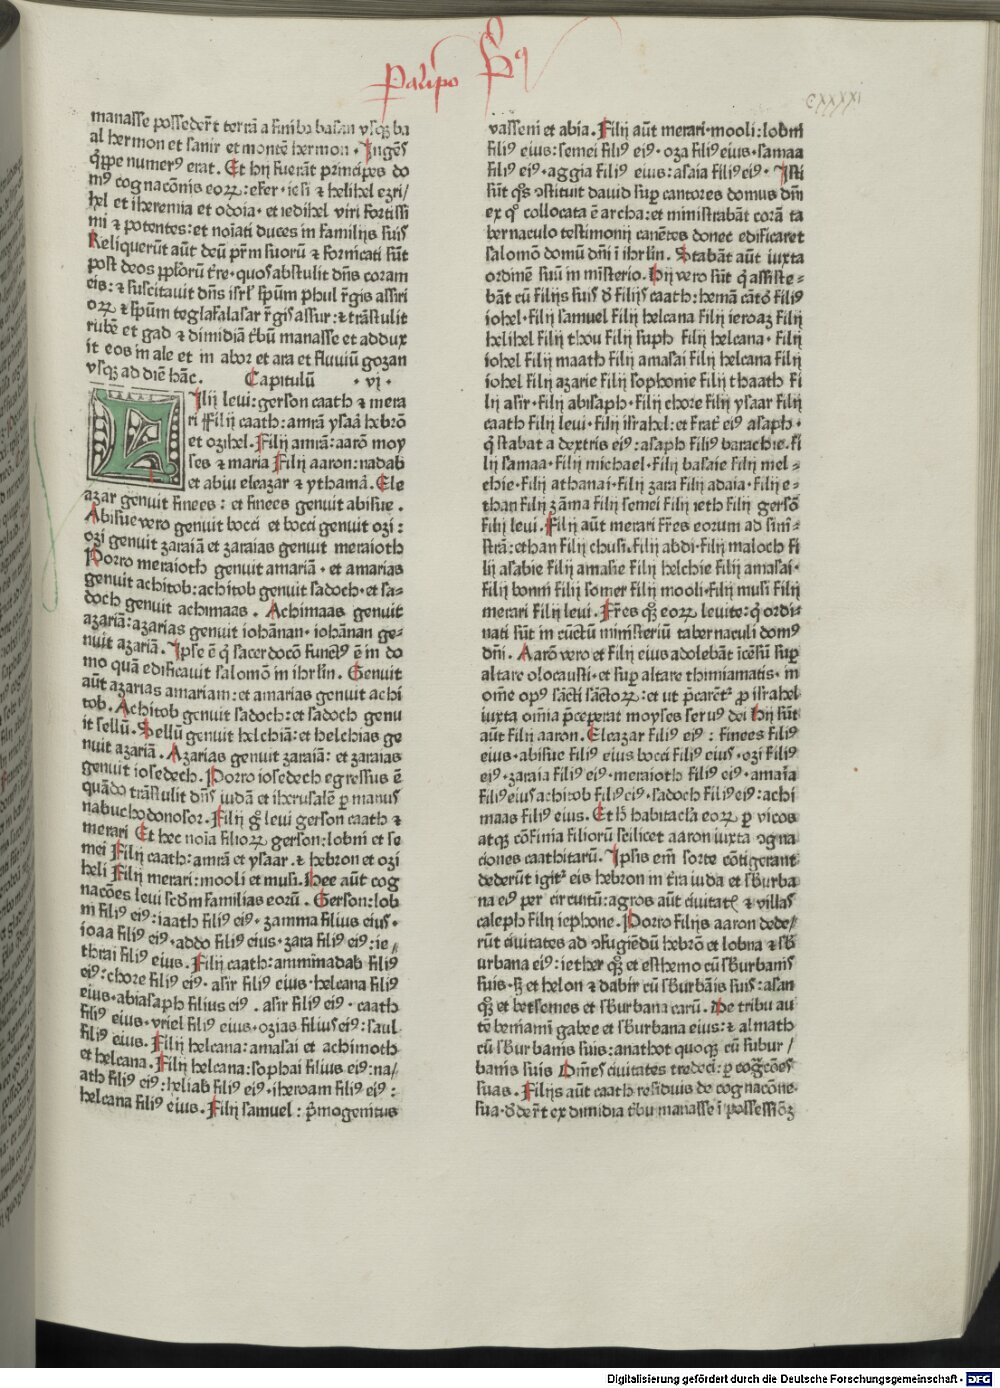 Paralipo Pq
CXXXXI
manasse possedēt terrā a finibꝰ basan vsqꝫ ba
al hermon et sanir et montē hermon · Ingēs
q̄ppe numerꝰ erat. Et hij fuerāt principes do
mꝰ cognacōnis eoꝝ: efer · iesi ⁊ helihel ezri/
hel et iheremia et odoia · et iedihel viri fortissi
mi ⁊ potentes: et noiati duces in familijs suis
Reliquerūt aūt deū pr̄m suorū ⁊ fornicati sūt
post deos pplōrū t̄re · quos abstulit dn̄s coram
eis: ⁊ suscitavit dn̄s isrl̄ spūm phul r̄gis assiri
oꝝ ⁊ spūm teglafalasar r̄gis assur: ⁊ trāstulit
rubē et gad ⁊ dimidiā tbū manasse et addux
it eos in ale et in abor et ara et fluviū gozan
vsqꝫ ad diē hāc. Capitulū · vi ·
Filij levi: gerson caath ⁊ mera
ri Filij caath: amrā ysaā hebrō
et ozihel. Filij amrā: aarō moy
ses ⁊ maria Filij aaron: nadab
et abiu eleazar ⁊ ythamā. Ele
azar genuit finees: et finees genuit abisue.
Abisue vero genuit bocci et bocci genuit ozi:
ozi genuit zaraiā et zaraias genuit meraioth
Porro meraioth genuit amariā · et amarias
genuit achitob: achitob genuit sadoch · et sa-
doch genuit achimaas. Achimaas genuit
azariā: azarias genuit iohānan · iohānan ge-
nuit azariā. Ipse ē q̄ sacerdocō functꝰ ē in do
mo quā edificauit salomō in ihrlm. Genuit
aūt azarias amariam: et amarias genuit achi
tob. Achitob genuit sadoch: et sadoch genu
it sellū. Sellū genuit helchiā: et helchias ge
nuit azariā. Azarias genuit zaraiā: et zaraias
genuit iosedech. Porro iosedech egressus ē
quādo trāstulit dn̄s iudā et iherusalē p̄ manus
nabuchodonosor. Filij g̊ levi gerson caath ⁊
merari Et hec noia filioꝝ gerson: lobni et se
mei Filij caath: amrā et ysaar · ⁊ hebron et ozi
heli Filij merari: mooli et musi. Hee aūt cog
nacōes levi scd̄m familias eorū. Gerson: lob
ni filiꝰ eiꝰ: iaath filiꝰ eiꝰ · zamma filius eius ·
ioaa filiꝰ eiꝰ · addo filiꝰ eius · zara filiꝰ eiꝰ: ie/
thrai filiꝰ eius. Filij caath: amminadab filiꝰ
eiꝰ: chore filiꝰ eiꝰ · asir filiꝰ eius · helcana filiꝰ
eius · abiasaph filius eiꝰ · asir filiꝰ eiꝰ · caath
filiꝰ eius · vriel filiꝰ eius · ozias filius eiꝰ: saul
filiꝰ eius. Filij helcana: amasai et achimoth
et helcana. Filij helcana: sophai filius eiꝰ: na/
ath filiꝰ eiꝰ: heliab filiꝰ eiꝰ · iheroam filiꝰ eiꝰ:
helcana filiꝰ eius. Filij samuel: p̄mogenitus
vasseni et abia. Filij aūt merari · mooli: lobni
filiꝰ eius: semei filiꝰ eiꝰ · oza filiꝰ eius · samaa
filiꝰ eiꝰ · aggia filiꝰ eius: asaia filiꝰ eiꝰ · Isti
sūt qͦs ꝯstituit david suꝑ cantores domus dn̄i
ex qͦ collocata ē archa: et ministrabāt corā ta
bernaculo testimonij canētes donec edificaret
salomō domū dn̄i ī ihrlm. Stabāt aūt iuxta
ordinē suū in mīsterio. Hij vero sūt q̄ assiste-
bāt cū filijs suis ꝺ filijs caath: hemā cātō filiꝰ
iohel · filij samuel filij helcana filij ieroaz filij
helihel filij thou filij suph filij helcana · filij
iohel filij maath filij amasai filij helcana filij
iohel filij azarie filij sophonie filij thaath fi
lij asir · filij abisaph · filij chore filij ysaar filij
caath filij levi · filij israhel: et frat̄ eiꝰ asaph ·
q̄ stabat a dextris eiꝰ: asaph filiꝰ barachie. fi
lij samaa · filij michael · filij basaie filij mel-
chie · filij athanai · filij zara filij adaia · filij e-
than filij zāma filij semei filij ieth filij gersō
filij levi. Filij aūt merari fr̄es eorum ad sini-
strā: ethan filij chusi. filij abdi · filij maloch fi
lij asabie filij amasie filij helchie filij amasai ·
filij bonni filij somer filij mooli · filij musi filij
merari filij levi. Fr̄es qꝫ eoꝝ levite: q̄ ordi-
nati sūt in cūctū ministeriū tabernaculi domꝰ
dn̄i. Aarō vero et filij eius adolebāt īcēsū suꝑ
altare olocausti · et suꝑ altare thimiamatis · in
om̄e opꝰ sācti sāctoꝝ: et ut p̄caret̉ ꝓ israhel
iuxta om̄ia p̄ceperat moyses seruꝰ dei Hij sūt
aūt filij aaron. Eleazar filiꝰ eiꝰ: finees filiꝰ
eius · abisue filiꝰ eius bocci filiꝰ eius · ozi filiꝰ
eiꝰ · zaraia filiꝰ eiꝰ · meraioth filiꝰ eiꝰ · amaīa
filiꝰ eius achitob filiꝰ eiꝰ · sadoch filiꝰ eiꝰ: achi
maas filiꝰ eius. Et h̄ habitacl̄a eoꝝ ꝑ vicos
atqꝫ cōfinia filiorū scilicet aaron iuxta ꝯgna
ciones caathitarū. Ipsis em̄ sorte cōtigerant
dederūt igit̉ eis hebron in t̄ra iuda et sb̄urba
na eiꝰ per circuitū: agros aūt ciuitat̄ ⁊ villas
caleph filij iephone. Porro filijs aaron dede/
rūt ciuitates ad ꝯfugiēdū hebrō et lobna ⁊ sb̄
urbana eiꝰ: iether qꝫ et esthemo cū sb̄urbanis
suis · sꝫ et helon ⁊ dabir cū sb̄urbāis suis: asan
qꝫ et betsemes et sb̄urbana earū. De tribu au
tē beniamin gabee et sb̄urbana eius: ⁊ almath
cū sb̄urbanis suis: anathot quoqꝫ cū subur/
banis suis Om̄es ciuitates tredeci: ꝑ coḡcōes
suas. Filijs aūt caath residuis de cognacōne
sua · ꝺder̄t ex dimidia tbu manasse ī possessiōꝫ
Digitalisierung gefördert durch die Deutsche Forschungsgemeinschaft - DFG